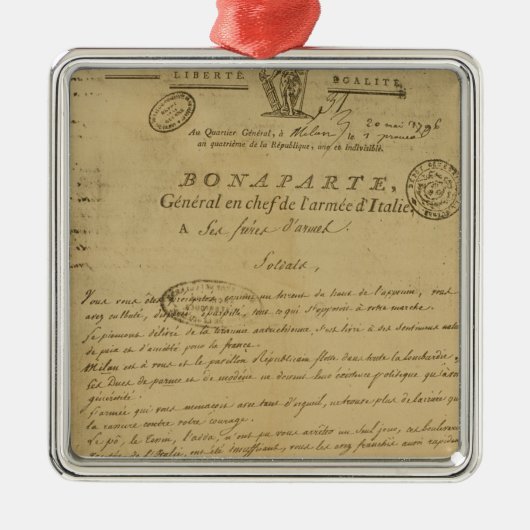 LIBERTÉ. EGALITÉ.
20 mai 1796
Au Quartier Général, à Milan le 1 prairial
an quatrième de la République, une et indivisible.
BONAPARTE,
Général en chef de l'armée d'Italie,
A Ses frères d'armes.
Soldats,
Vous vous êtes précipités comme un torrent du haut de l'apennin, vous
avez culbuté, dispersé, éparpillé, tout ce qui s'opposoit à votre marche.
Le piemont délivré de la tirannie autrichienne, s'est livré à ses sentimens natu
de paix et d'amitié pour la france.
Milan est à vous et le pavillon Républicain flotte dans toute la Lombardie.
Les Ducs de parme et de modène ne doivent leur existence politique qu'à vo
générosité.
L'armée qui vous menaçoit avec tant d'orgueil, ne trouve plus de barrière qui
la rassure contre votre courage.
Le pô, le Tessin, l'adda, n'ont pu vous arrêter un seul jour, ces boulevards
de l'Italie, ont été insuffisans, vous les avez franchis aussi rapidem